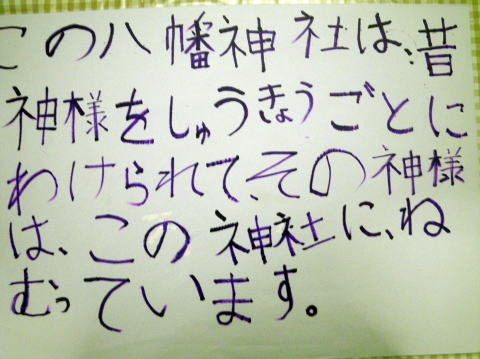 この八幡神社は、昔
神様をしゅうきょうごとに
わけられて、その神様
は、この神社に、ね
むっています。